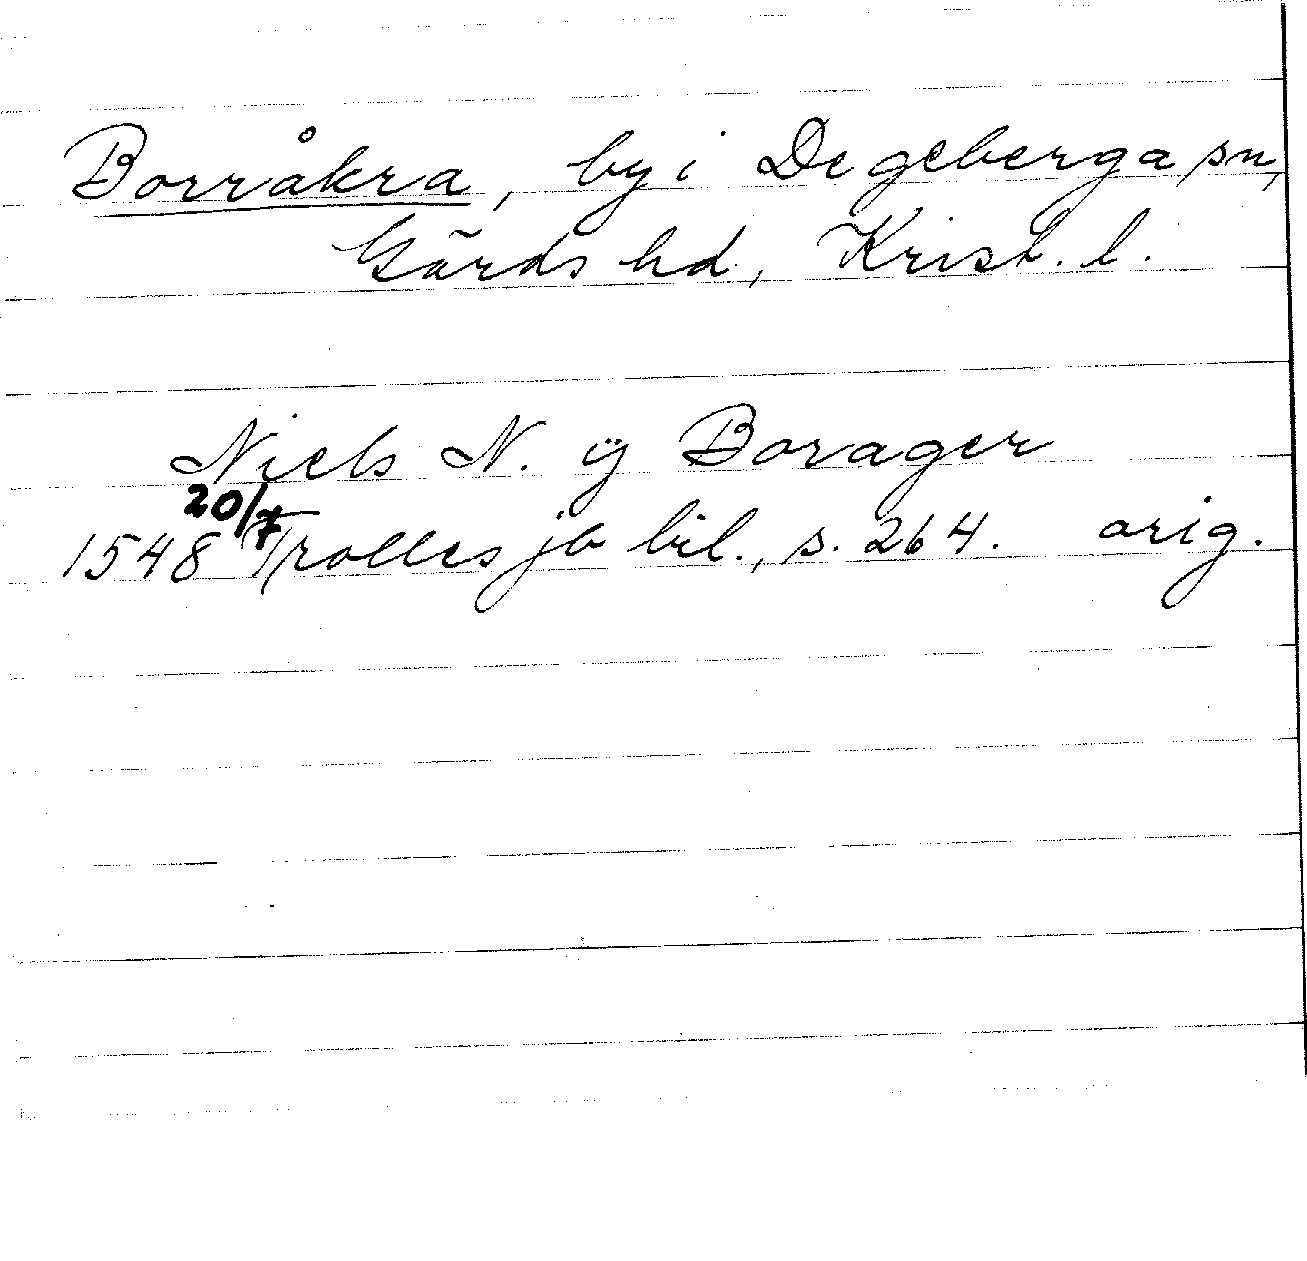 Borråkra, by i Degeberga sn,
Gärds hd., Krist. l.
Niels N. ÿ Borager
1548 20/7 Trolles jb bil., s. 264. orig.